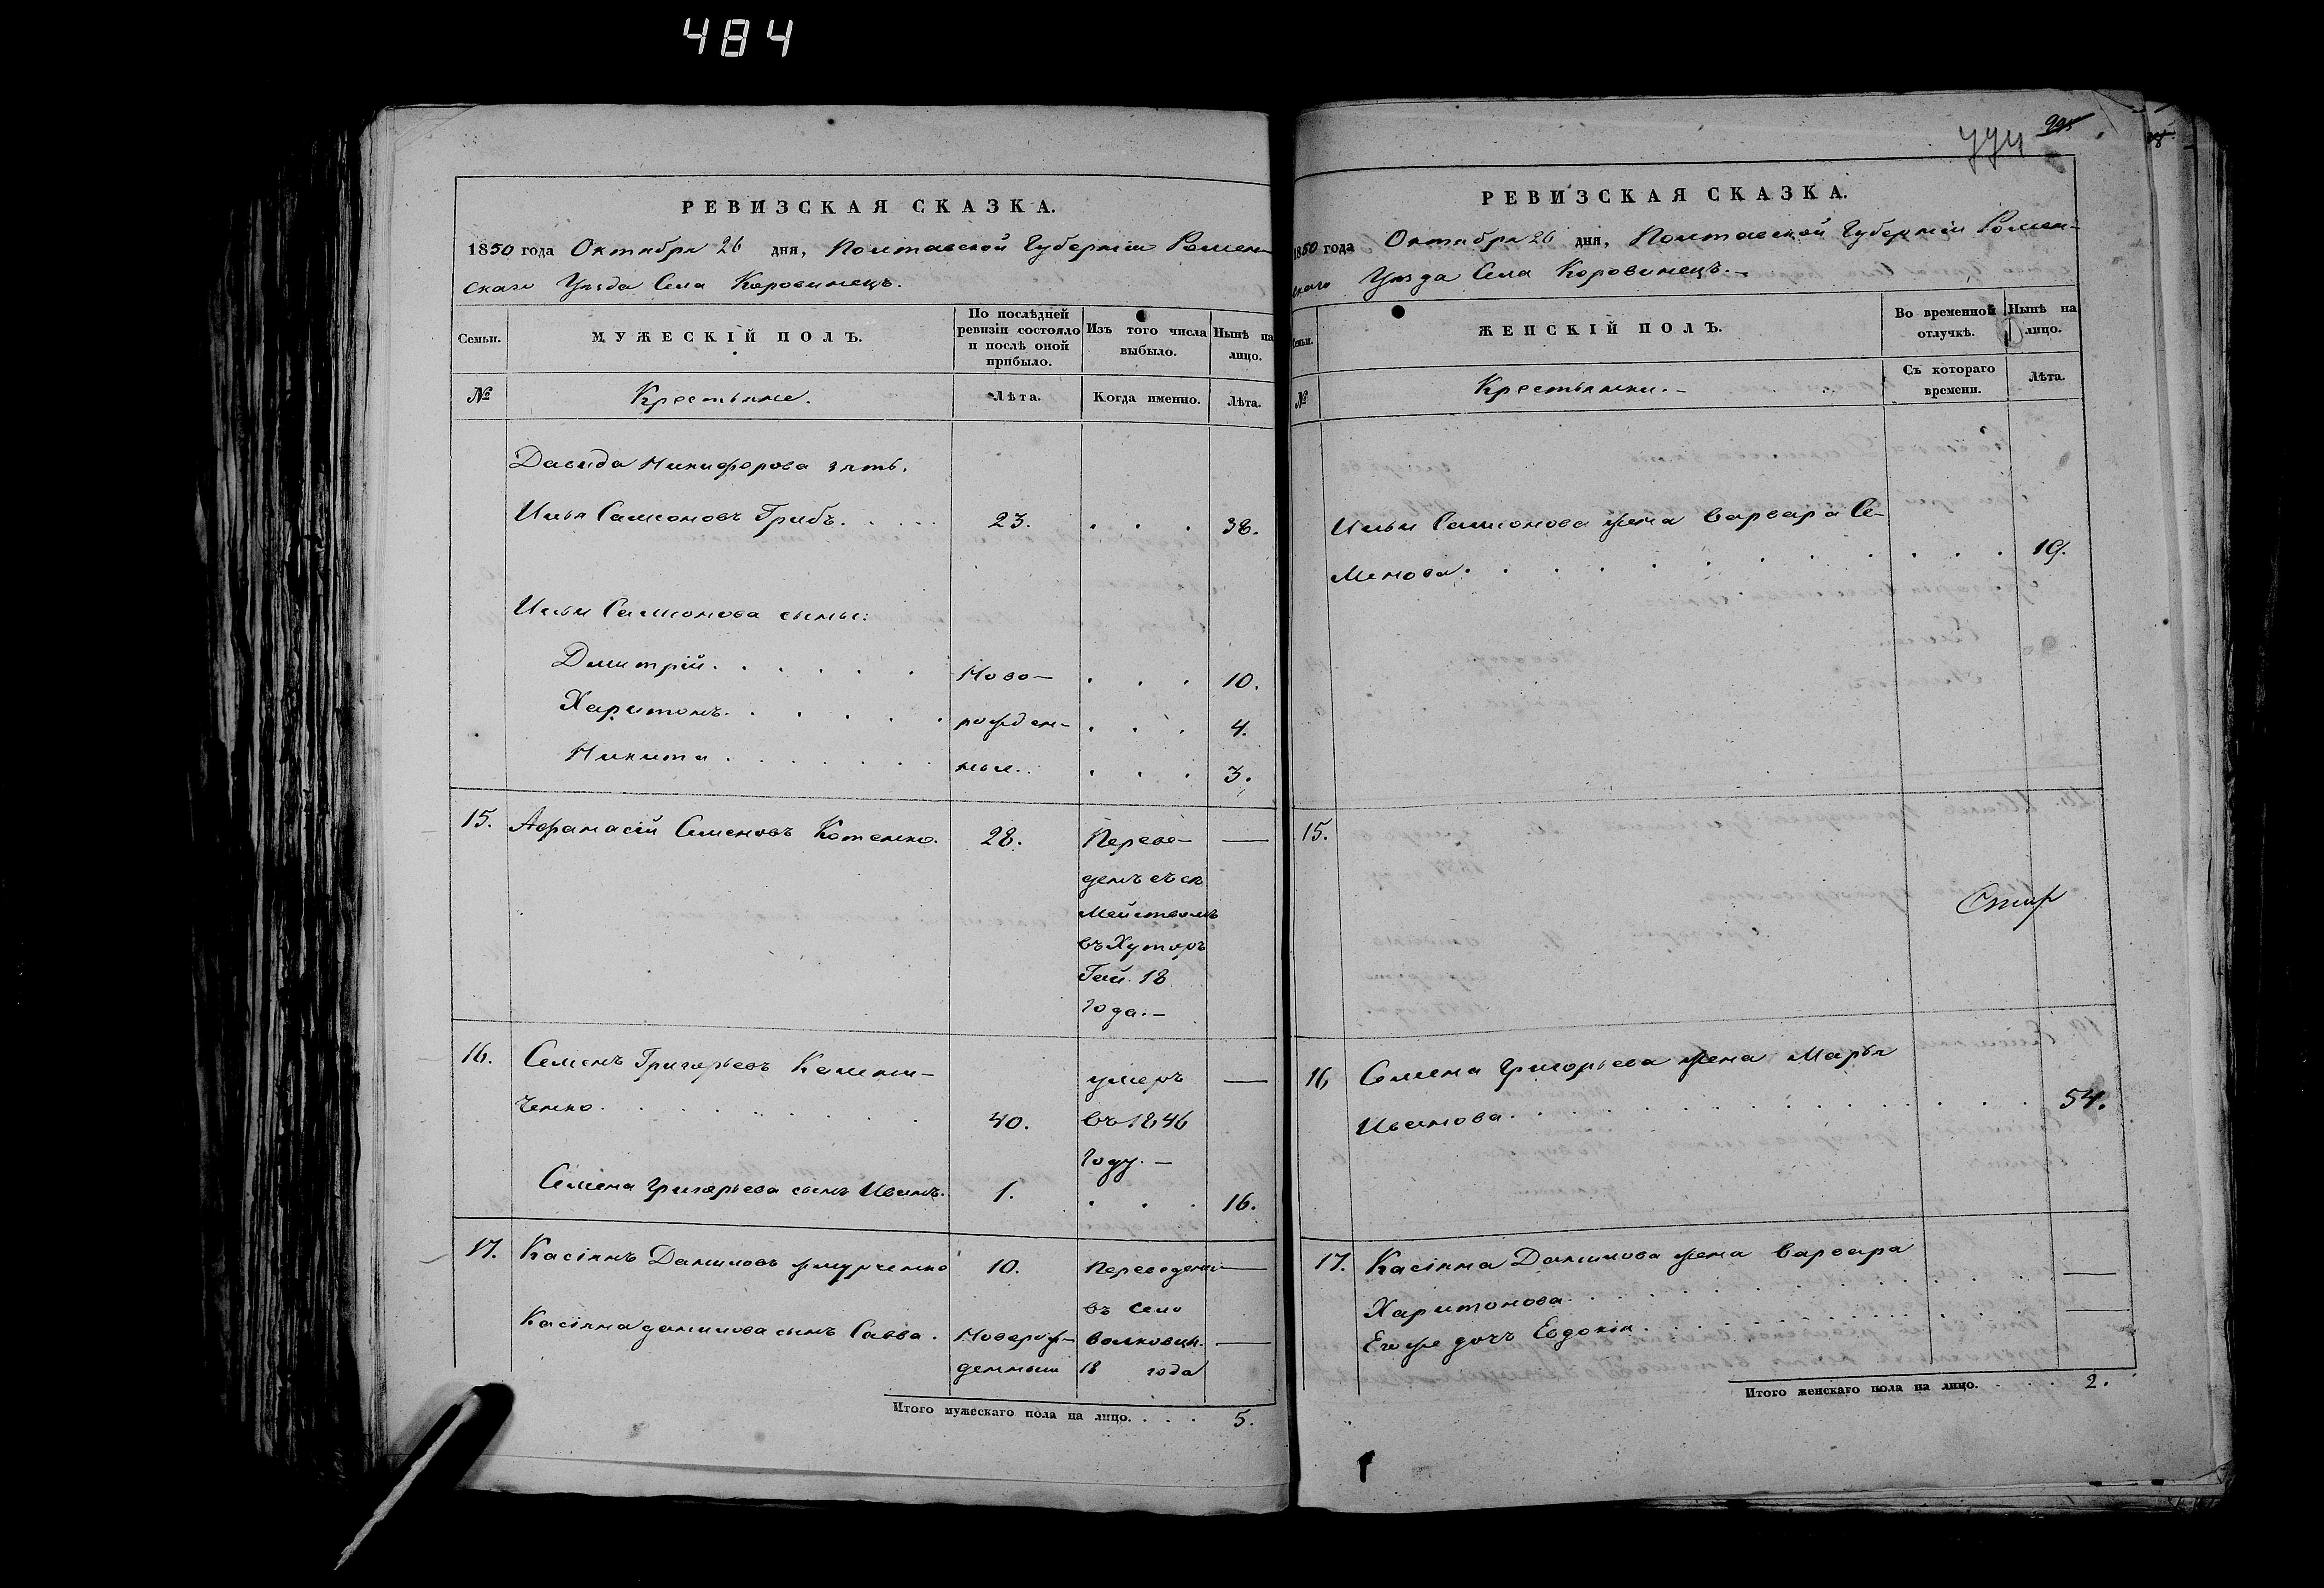 484
РЕВИЗСКАЯ СКАЗКА.
1850 года Октября 26 дня, Полтавской Губерніи Ромен-
скаго Уѣзда Села Коровинецъ.
Семьи.
МУЖЕСКІЙ ПОЛЪ.
По послѣдней ревизіи состояло и послѣ оной прибыло.
Изъ того числа выбыло.
Нынѣ на лицо.
№
Крестьяне.
Лѣта.
Когда именно.
Лѣта.
Давида Никифорова зять.
Илья Самсоновъ Грибъ. 23. 38.
Ильи Самсонова сыны:
Дмитрій. Ново- 10.
Харитонъ. рожден- 4.
Никита ные. 3.
15. Афанасій Семеновъ Котенко. 28. Переве- —
денъ съ се
мействомъ
въ Хуторъ
Гай. 18
года.—
16. Семенъ Григорьевъ умеръ —
ченко. 40. въ 1846
году.—
Семена Григорьева сынъ Иванъ. 1. 16.
17. Касіянъ Даниловъ 10. Переведены —
въ село
Касіяна данилова сынъ Савва. Новорож- Волковцы. —
денный 18 года
Итого мужескаго пола на лицо. 5.
995
РЕВИЗСКАЯ СКАЗКА.
1850 года Октября 26 дня, Полтавской Губерніи Ромен-
скаго Уѣзда Села Коровинецъ.—
Семьи.
ЖЕНСКІЙ ПОЛЪ.
Во временной отлучкѣ.
Нынѣ на лицо.
№
Крестьянки.—
Съ котораго времени.
Лѣта.
Ильи Самсонова жена Варвара Се-
менова. 19.
15.
16 Семена Григорьева жена Марья
Иванова. 54.
17. Касіяна Данилова жена Варвара
Харитонова. —
Егоже дочь Евдокія. —
Итого женскаго пола на лицо. 2.